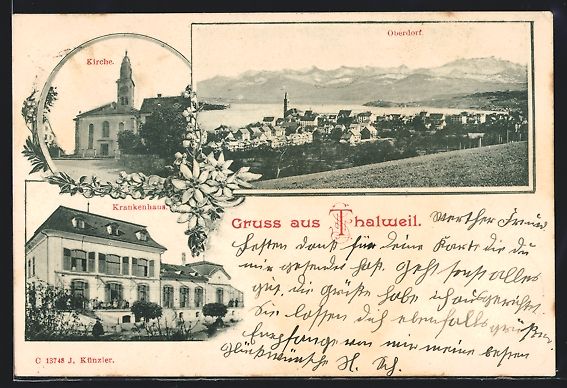 Kirche.
Oberdorf.
Krankenhaus.
Gruss aus Thalweil.
Werther Freund
Besten dank für deine Karte die du
mir gesendet hast. Geht sonst alles
gut, die Grüße habe ich ausgerichtet.
Sie lassen dich ebenfalls grüßen.
Empfange von mir meine besten
Glückwünsche H. Sch.
C 13748 J. Künzler.